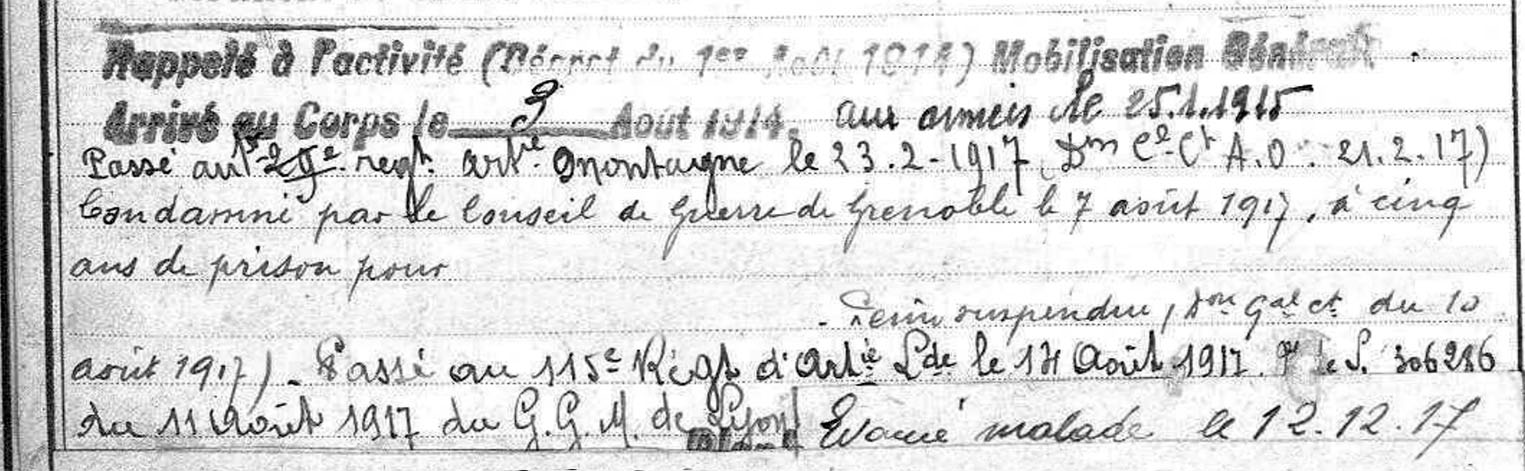 Rappelé à l'activité (Décret du 1er Août 1914) Mobilisation Générale
Arrivé au Corps le 3 Août 1914. aux armées le 25.1.1915
Passé au 2e regt. artie montagne le 23.2-1917 Don Cel Ct A.D. 21.2.17)
Condamné par le Conseil de Guerre de Grenoble le 7 août 1917, à cinq
ans de prison pour
Peine suspendue, Don Gal ct du 10
août 1917) - Passé au 115e Régt d'Artie Lde le 14 Août 1917. S. 306286
du 11 Août 1917 du G.G.M. de Lyon Evacué malade le 12.12.17